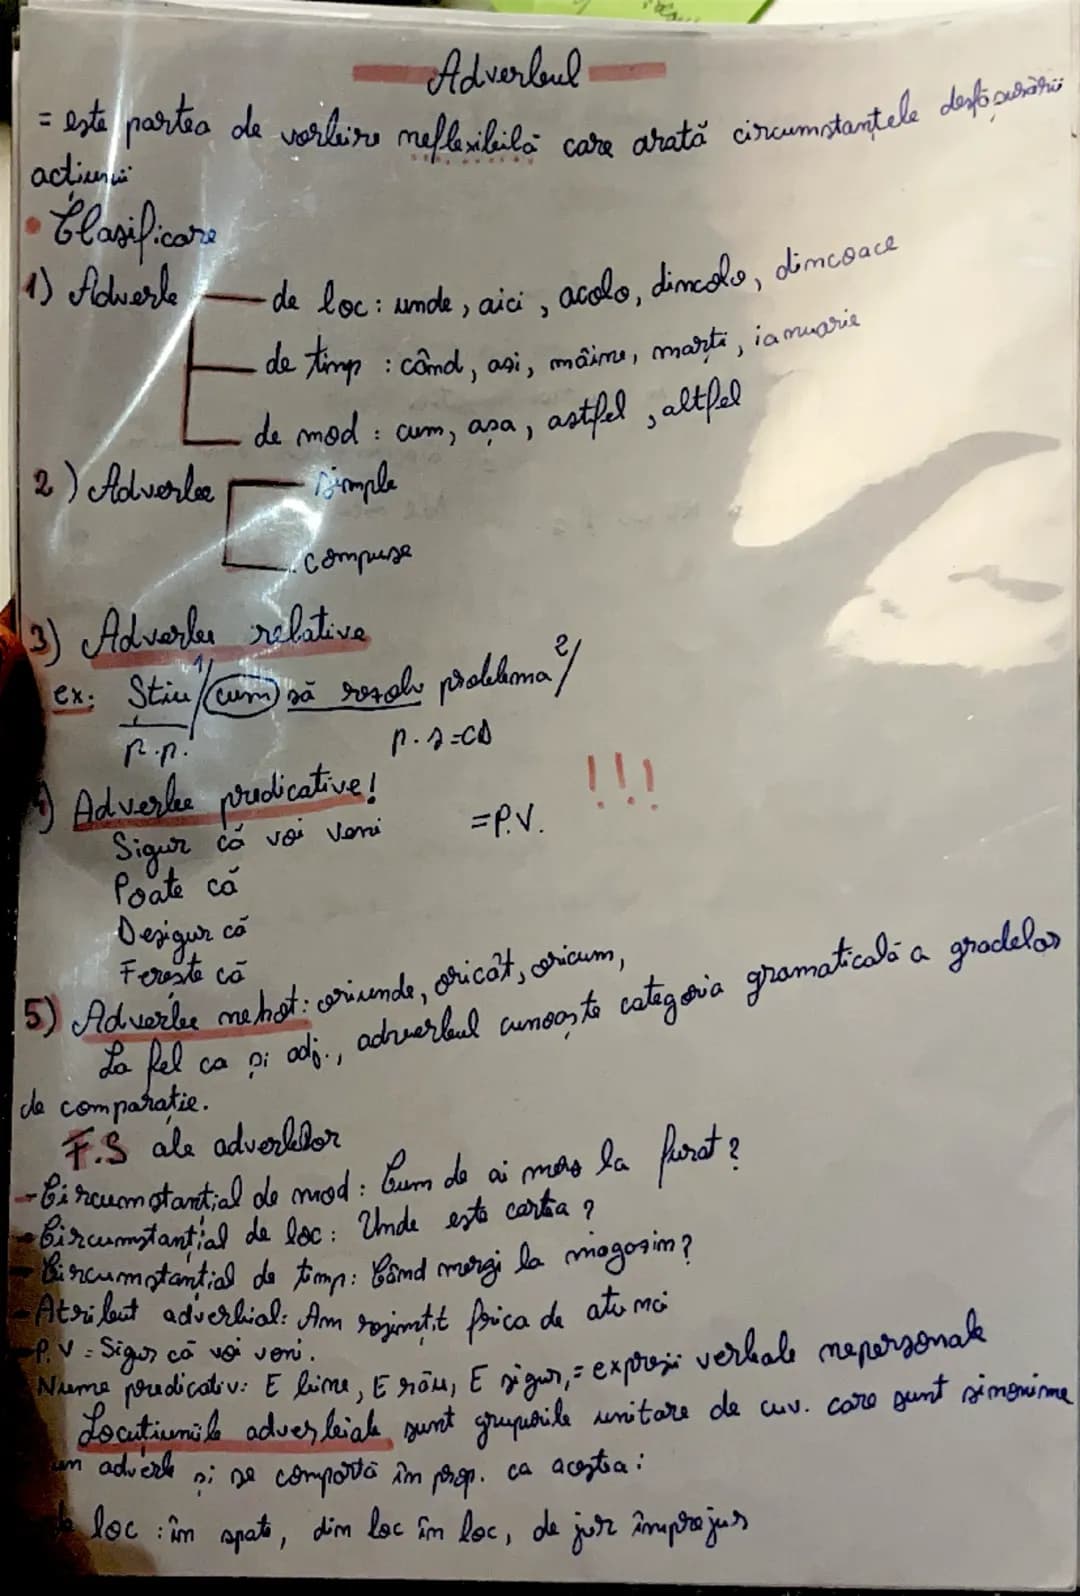 Adverbul
= este partea de vorbire neflexibilă care arată circumstanțele desfășurării
acțiunii
• Clasificare
1) Adverbe
de loc: unde, aici, acolo, dincolo, dincoace
de timp: când, azi, mâine, marți, ianuarie
de mod: cum, așa, astfel, altfel
2) Adverbe
simple
compuse
3) Adverbe relative
ex: Știu 1/ cum să rezolv problema 2/
p.p. p.s=CD
4) Adverbe predicative! !!!
Sigur că voi veni =P.V.
Poate că
Desigur că
Ferește că
5) Adverbe nehot: oriunde, oricât, oricum,
La fel ca și adj., adverbul cunoaște categoria gramaticală a gradelor
de comparație.
F.S ale adverbelor
- Circumstanțial de mod: Cum de ai mers la furat?
- Circumstanțial de loc: Unde este cartea?
- Circumstanțial de timp: Când mergi la magazin?
- Atribut adverbial: Am resimțit frica de atunci
- P.V = Sigur că voi veni.
Nume predicativ: E bine, E rău, E sigur, = expresii verbale nepersonale
Locuțiunile adverbiale sunt grupurile unitare de cuv. care sunt sinonime
un adverb și se comportă în prop. ca acesta:
de loc: în spate, din loc în loc, de jur împrejur